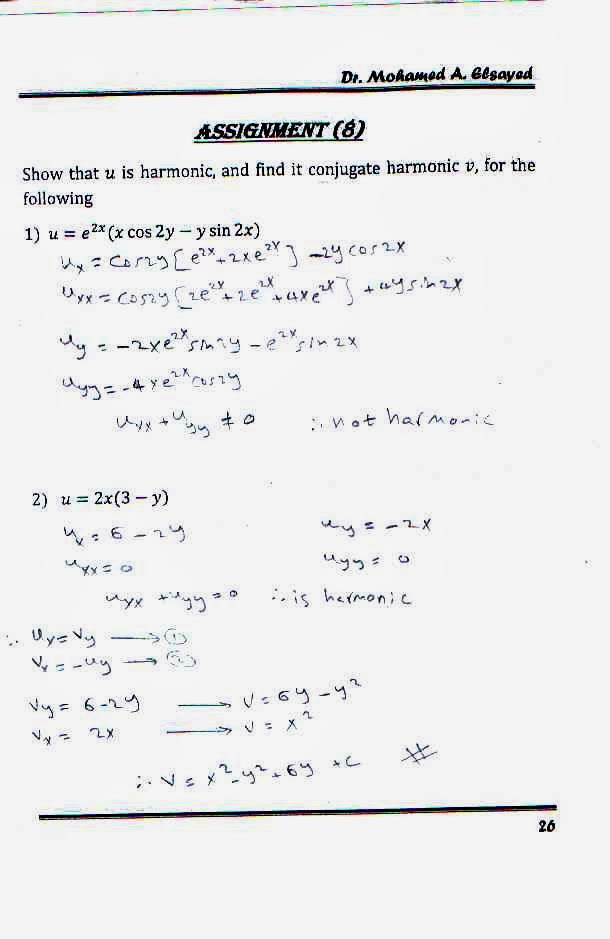 Dr. Mohamed A. Elsayed
ASSIGNMENT (8)
Show that u is harmonic, and find it conjugate harmonic v, for the
following
1) u = e^{2x}(x cos 2y − y sin 2x)
u_x = cos2y [e^{2x} + 2xe^{2x}] − 2y cos 2x
u_xx = cos2y [2e^{2x} + 2e^{2x} + 4xe^{2x}] + 4y sin 2x
u_y = −2xe^{2x} sin 2y − e^{2x} sin 2x
u_yy = −4xe^{2x} cos2y
u_xx + u_yy ≠ 0 ∴ not harmonic
2) u = 2x(3 − y)
u_x = 6 − 2y u_y = −2x
u_xx = 0 u_yy = 0
u_xx + u_yy = 0 ∴ is harmonic
∵ u_x = v_y → ①
v_x = −u_y → ②
v_y = 6 − 2y → v = 6y − y²
v_x = 2x → v = x²
∴ v = x² − y² + 6y + c #
26